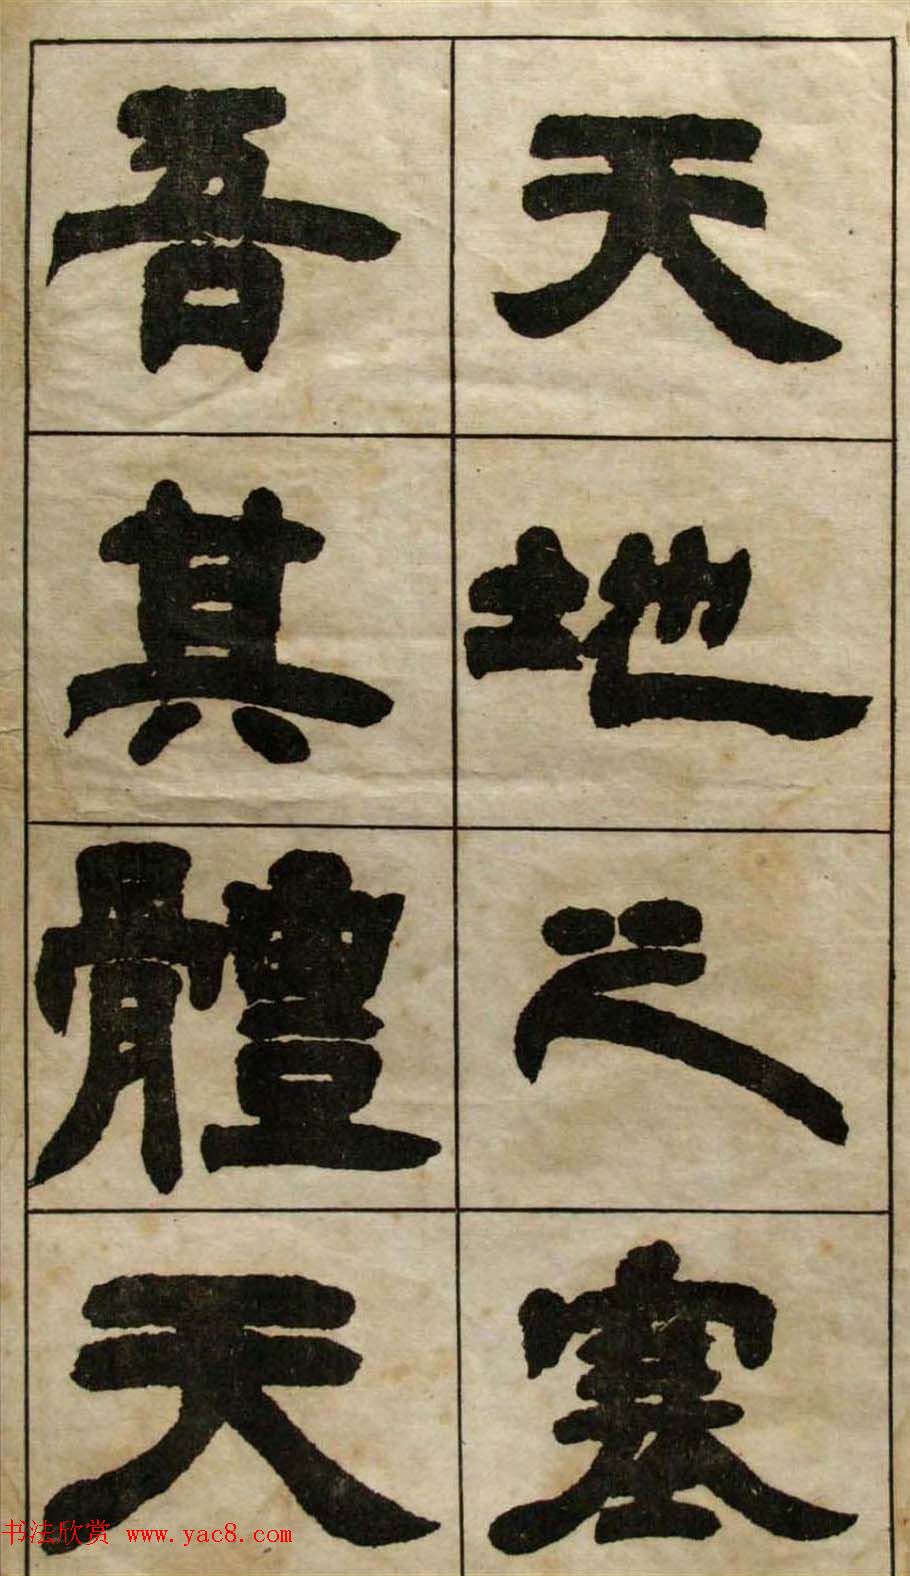 天地之塞
吾其體天
书法欣赏 www.yac8.com